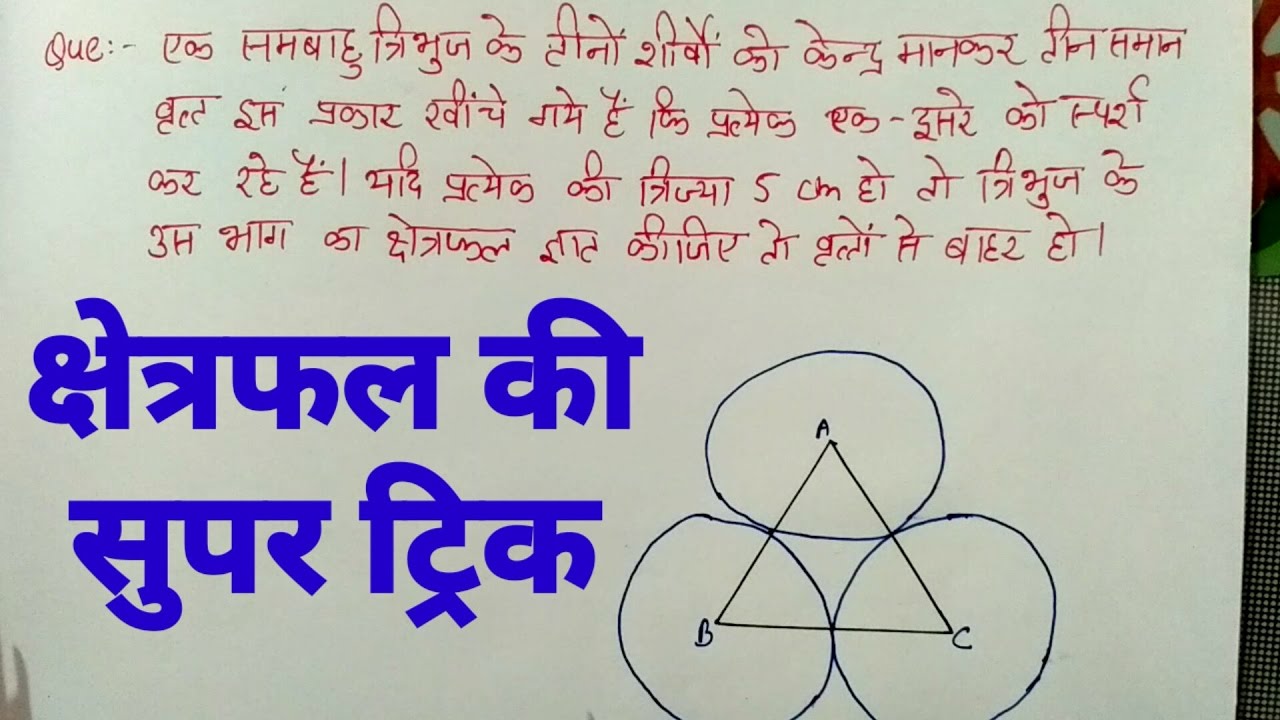 Que:- एक समबाहु त्रिभुज के तीनों शीर्षों को केन्द्र मानकर तीन समान
वृत्त इस प्रकार खींचे गये हैं कि प्रत्येक एक-दूसरे को स्पर्श
कर रहे हैं। यदि प्रत्येक की त्रिज्या 5 cm हो तो त्रिभुज के
उस भाग का क्षेत्रफल ज्ञात कीजिए जो वृत्तों से बाहर हो।
क्षेत्रफल की
सुपर ट्रिक
A
B
C